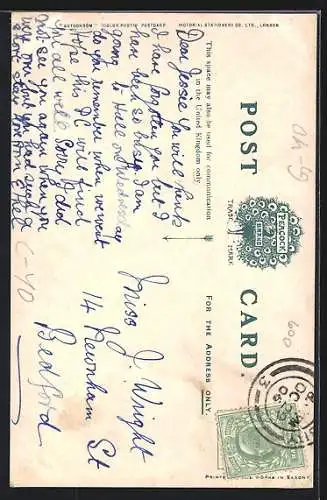 "AUTOCHROM" (COLOUR PHOTO) POSTCARD PICTORIAL STATIONERY CO., LTD., LONDON
Dear Jessie You will think
I have forgotten you but I
have been so busy. I am
going to Hull on Wednesday
do you remember when we went
Hope this P.C. will find
you all well. Sorry I did
not see you again when you
This space may also be used for communication
in the United Kingdom only
POST CARD.
PEACOCK
BRAND
TRADE MARK
FOR THE ADDRESS ONLY.
Miss J. Wright
14 Newnham St
Bedford
600
PRINTED AT THE WORKS IN SAXONY